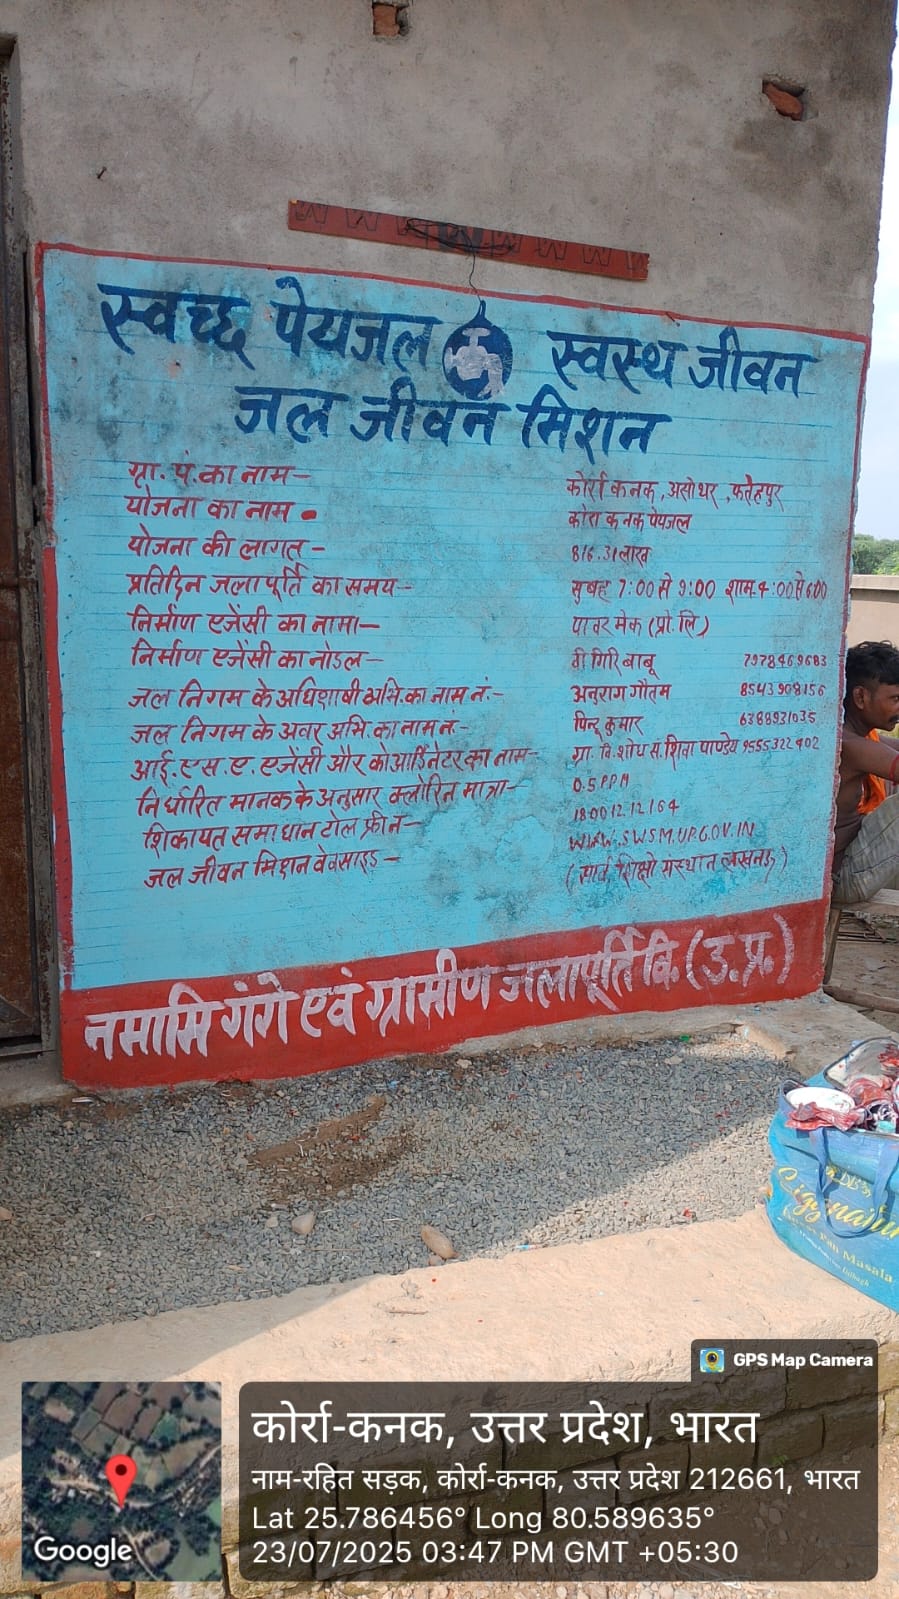 स्वच्छ पेयजल स्वस्थ जीवन
जल जीवन मिशन
ग्रा. पं. का नाम - कोर्रा कनक, असोथर, फतेहपुर
योजना का नाम - कोरा कनक पेयजल
योजना की लागत - 816.31 लाख
प्रतिदिन जलापूर्ति का समय - सुबह 7:00 से 9:00 शाम 4:00 से 6:00
निर्माण एजेंसी का नामा - पावर मेक (प्रो. लि)
निर्माण एजेंसी का नोडल - वी गिरि बाबू 7978469683
जल निगम के अधिशाषी अभि. का नाम नं. - अनुराग गौतम 8543908156
जल निगम के अवर अभि. का नाम नं. - पिन्टू कुमार 6388931035
आई. एस. ए. एजेंसी और कोआर्डिनेटर का नाम - ग्रा. वि. शोध स. शिवा पाण्डेय 9555322402
निर्धारित मानक के अनुसार क्लोरिन मात्रा - 0.5 PPM
शिकायत समाधान टोल फ्रीन - 180012.12164
जल जीवन मिशन वेवसाइड - WWW.SWSM.UP.GOV.IN
संस्थान लखनऊ)
नमामि गंगे एवं ग्रामीण जलापूर्ति वि. (उ. प्र.)
DB's
Signature
Pan Masala
GPS Map Camera
कोर्रा-कनक, उत्तर प्रदेश, भारत
नाम-रहित सड़क, कोर्रा-कनक, उत्तर प्रदेश 212661, भारत
Lat 25.786456° Long 80.589635°
23/07/2025 03:47 PM GMT +05:30
Google